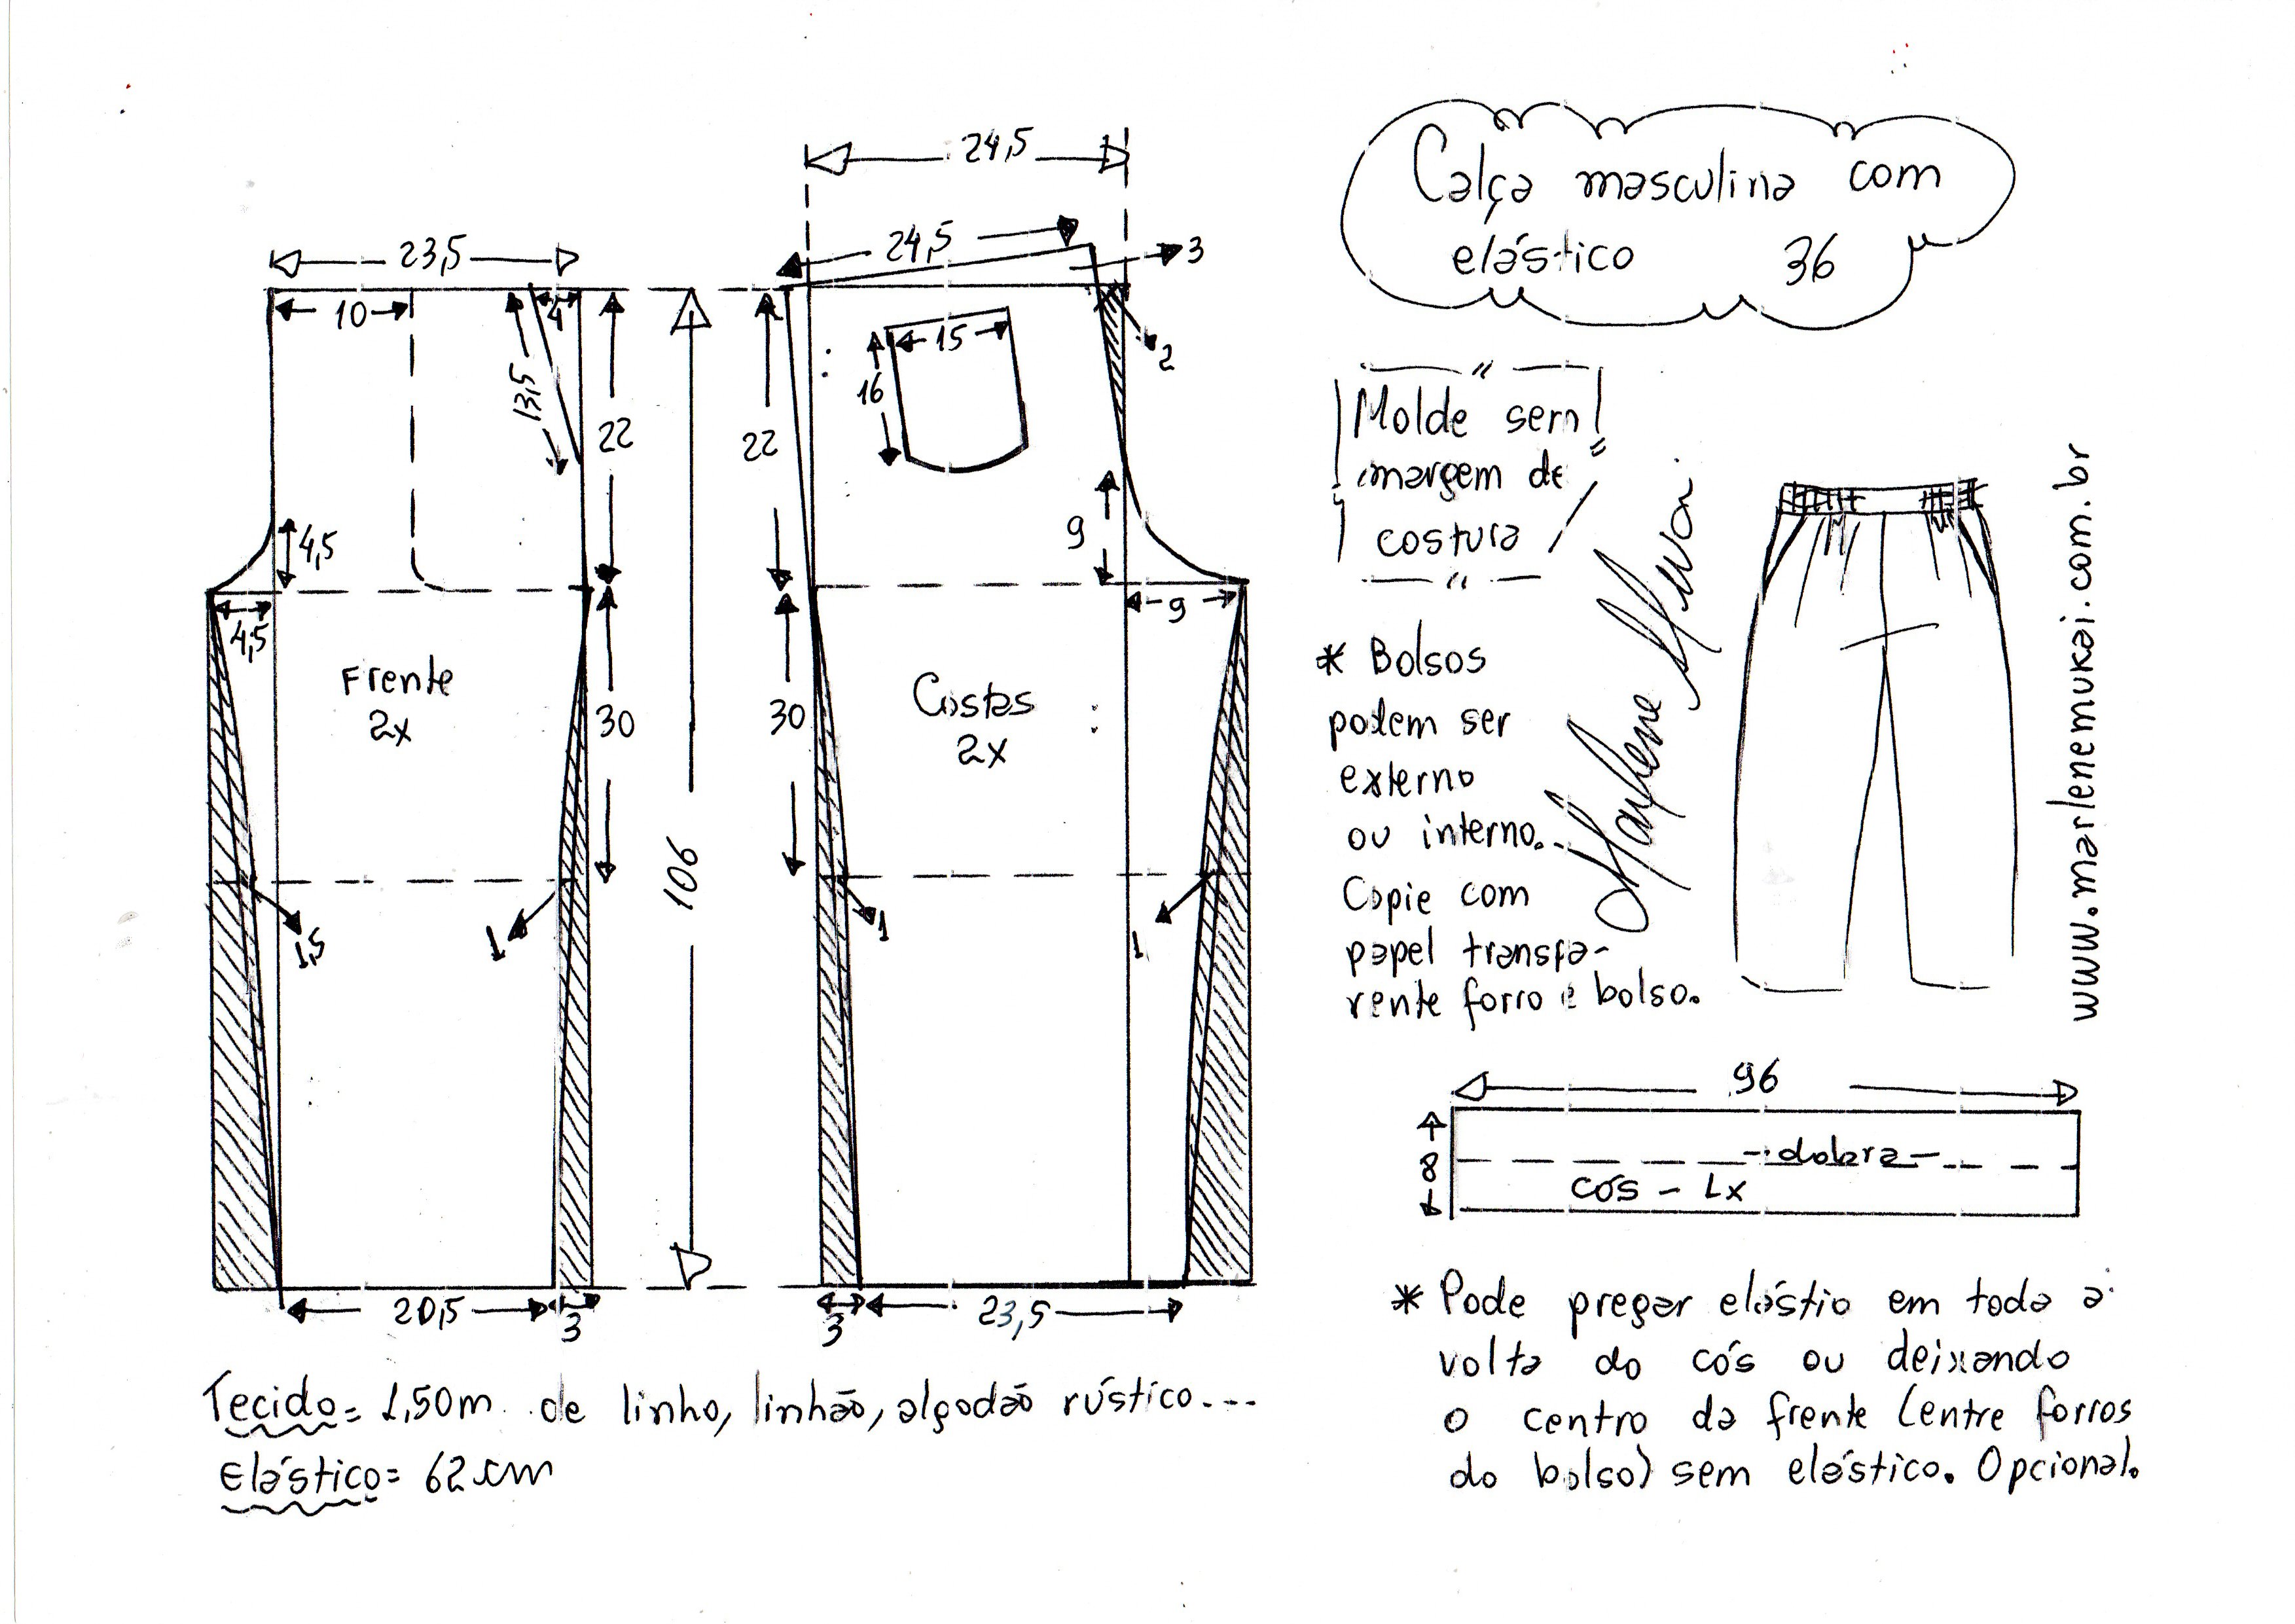 Calça masculina com
elástico 36
Molde sem
margem de
costura
* Bolsos
podem ser
externo
ou interno.
Copie com
papel transpa-
rente forro e bolso.
Marlene Mukai
www.marlenemukai.com.br
24,5
24,5
3
2
15
16
22
9
9
30
Costas
2x
1
1
3
23,5
23,5
10
4
13,5
22
4,5
4,5
Frente
2x
30
106
1,5
1
20,5
3
96
8
dobra
cós - 1x
* Pode pregar elástio em toda a
volta do cós ou deixando
o centro da frente (entre forros
do bolso) sem elástico. Opcional.
Tecido= 1,50m de linho, linhão, algodão rústico...
Elástico= 62 cm